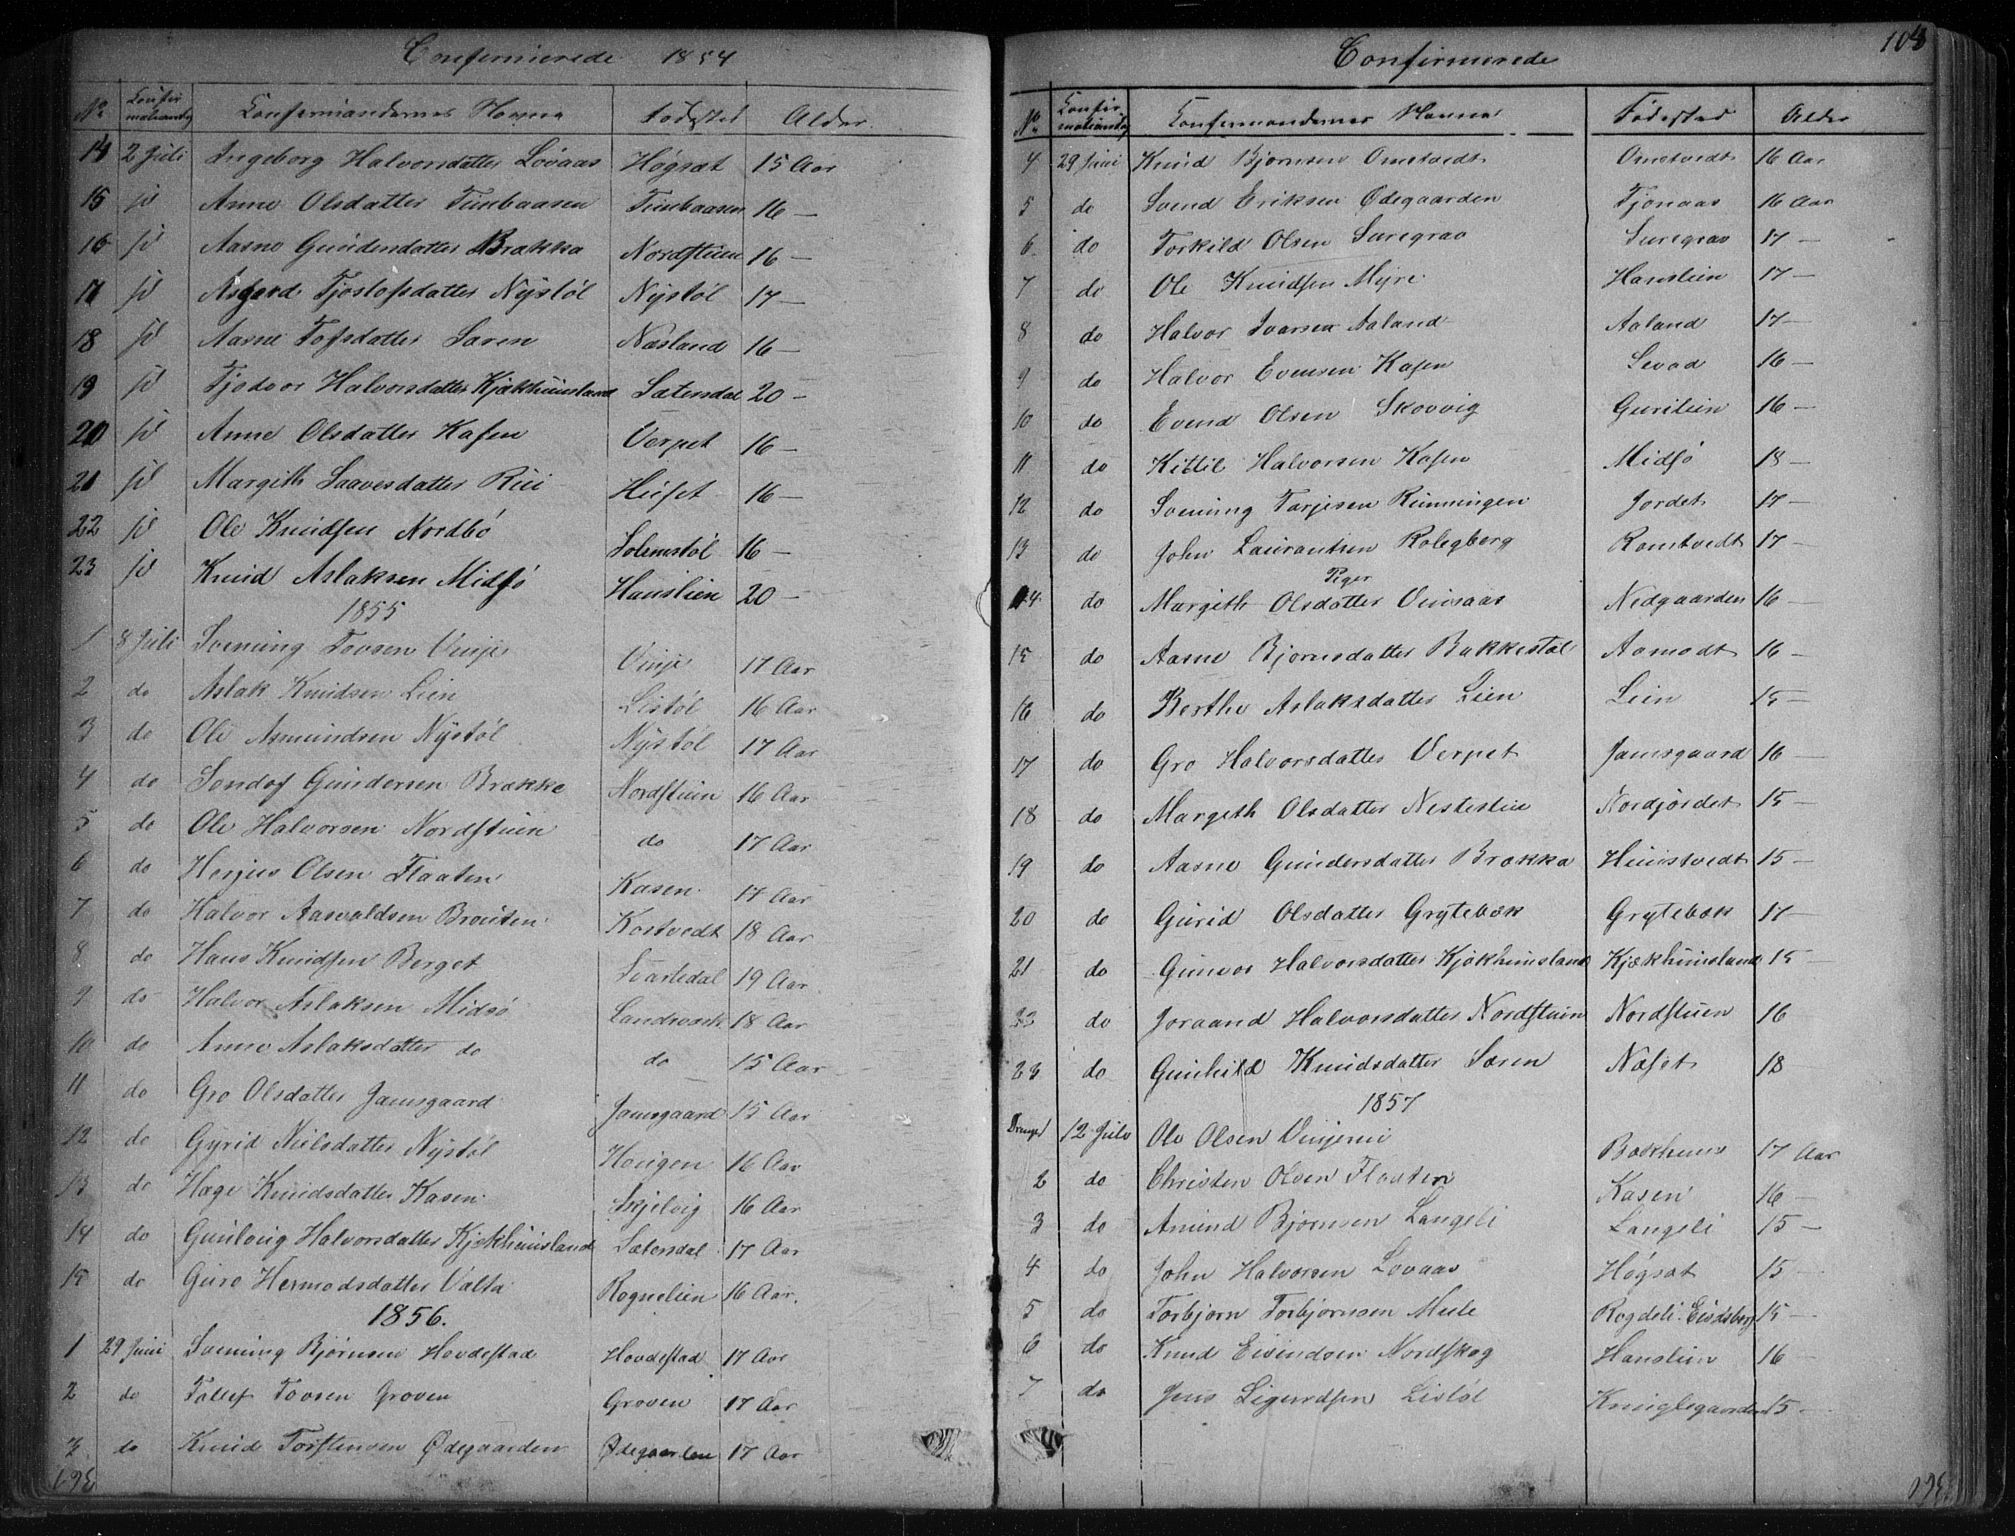 Confirmerede 1854
No Confirmationsdag Confirmandernes Navne Fødested Alder
14 2 Juli Ingeborg Halvorsdatter Lovaas Høgsat 15 Aar
15 id Anne Olsdatter Timbaasen Timbaasen 16 —
16 id Aasne Gundersdatter Brækka Nordstuen 16 —
17 id Asgerd Tjostofsdatter Nystøl Nystøl 17 —
18 id Aasne Tofsdatter Saren Næsland 16 —
19 id Tjodvor Halvorsdatter Kjækhuusland Sætersdal 20 —
20 id Anne Olsdatter Kasen Verpet 16 —
21 id Margith Saavesdatter Rui Huset 16 —
22 id Ole Knudsen Nordbø Solemstøl 16 —
23 id Knud Aslaksen Midsø Hanslien 20 —
1855
1 8 Juli Svenung Tovsen Vinje Vinje 17 Aar
2 do Aslak Knudsen Lien Listøl 16 Aar
3 do Ole Asmundsen Nystøl Nystøl 17 Aar
4 do Sondof Gundersen Brække Nordstuen 16 Aar
5 do Ole Halvorsen Nordstuen do 17 Aar
6 do Herjus Olsen Flaaten Kasen 17 Aar
7 do Halvor Aasvaldsen Brouten Kostvedt 18 Aar
8 do Hans Knudsen Berget Svartedal 19 Aar
9 do Halvor Aslaksen Midsø Landsværk 18 Aar
10 do Anne Aslaksdatter do do 15 Aar
11 do Gro Olsdatter Jamsgaard Jamsgaard 15 Aar
12 do Gyrid Nielsdatter Nystøl Hougen 16 Aar
13 do Hæge Knudsdatter Kasen Skjelvig 16 Aar
14 do Gunloug Halvorsdatter Kjækhuusland Sætersdal 17 Aar
15 do Guro Hermodsdatter Valta Rognelien 16 Aar.
1856.
1 29 Juni Svenung Bjørnsen Hovdestad Hovdestad 17 Aar
2 do Tallef Tovsen Groven Groven 17 Aar
3 do Knud Torstensen Ødegaarden Ødegaarden 17 Aar
Confirmerede 108
No Confirmationsdag Confirmandernes Navne Fødested Alder
4 29 Juni Knud Bjørnsen Omtvedt Omtvedt 16 Aar
5 do Svend Eriksen Ødegaarden Tjønaas 16 Aar
6 do Torkild Olsen Suregrav Suregrav 17 —
7 do Ole Knudsen Myre Hanslien 17 —
8 do Halvor Ivarsen Aaland Aaland 17 —
9 do Halvor Evensen Kasen Sevad 16 —
10 do Evend Olsen Skovvig Gurilien 16 —
11 do Kittil Halvorsen Kasen Midsø 18 —
12 do Svenung Tarjesen Runningen Jordet 17 —
13 do John Laurantsen Rolegberg Romtvedt 17 —
Piger
14 do Margith Olsdatter Vinsaas Nedgaarden 16 —
15 do Aasne Bjørnsdatter Bakkestøl Aamodt 16 —
16 do Berthe Aslaksdatter Lien Lien 15 —
17 do Gro Halvorsdatter Verpet Jamsgaard 16 —
18 do Margith Olsdatter Nestestue Nordjordet 15 —
19 do Aasne Gundersdatter Brækka Huustvedt 15 —
20 do Gurid Olsdatter Grytebæk Grytebæk 17 —
21 do Gunvor Halvorsdatter Kjækhuusland Kjækhuusland 15 —
22 do Joraand Halvorsdatter Nordstuen Nordstuen 16
23 do Gunhild Knudsdatter Særen Næset 18
1857
Drenge 1 12 Julo Ole Olsen Vinjerui Bækhuus 17 Aar
2 do Christen Olsen Flaaten Kasen 16 —
3 do Amund Bjørnsen Langeli Langeli 15 —
4 do John Halvorsen Lovaas Høgsat 15 —
5 do Torbjørn Torbjørnsen Mule Rogdeli Eidsborg 15 —
6 do Knud Eivindsen Nordskog Hanslien 16 —
7 do Jens Sigurdsen Listøl 15 —